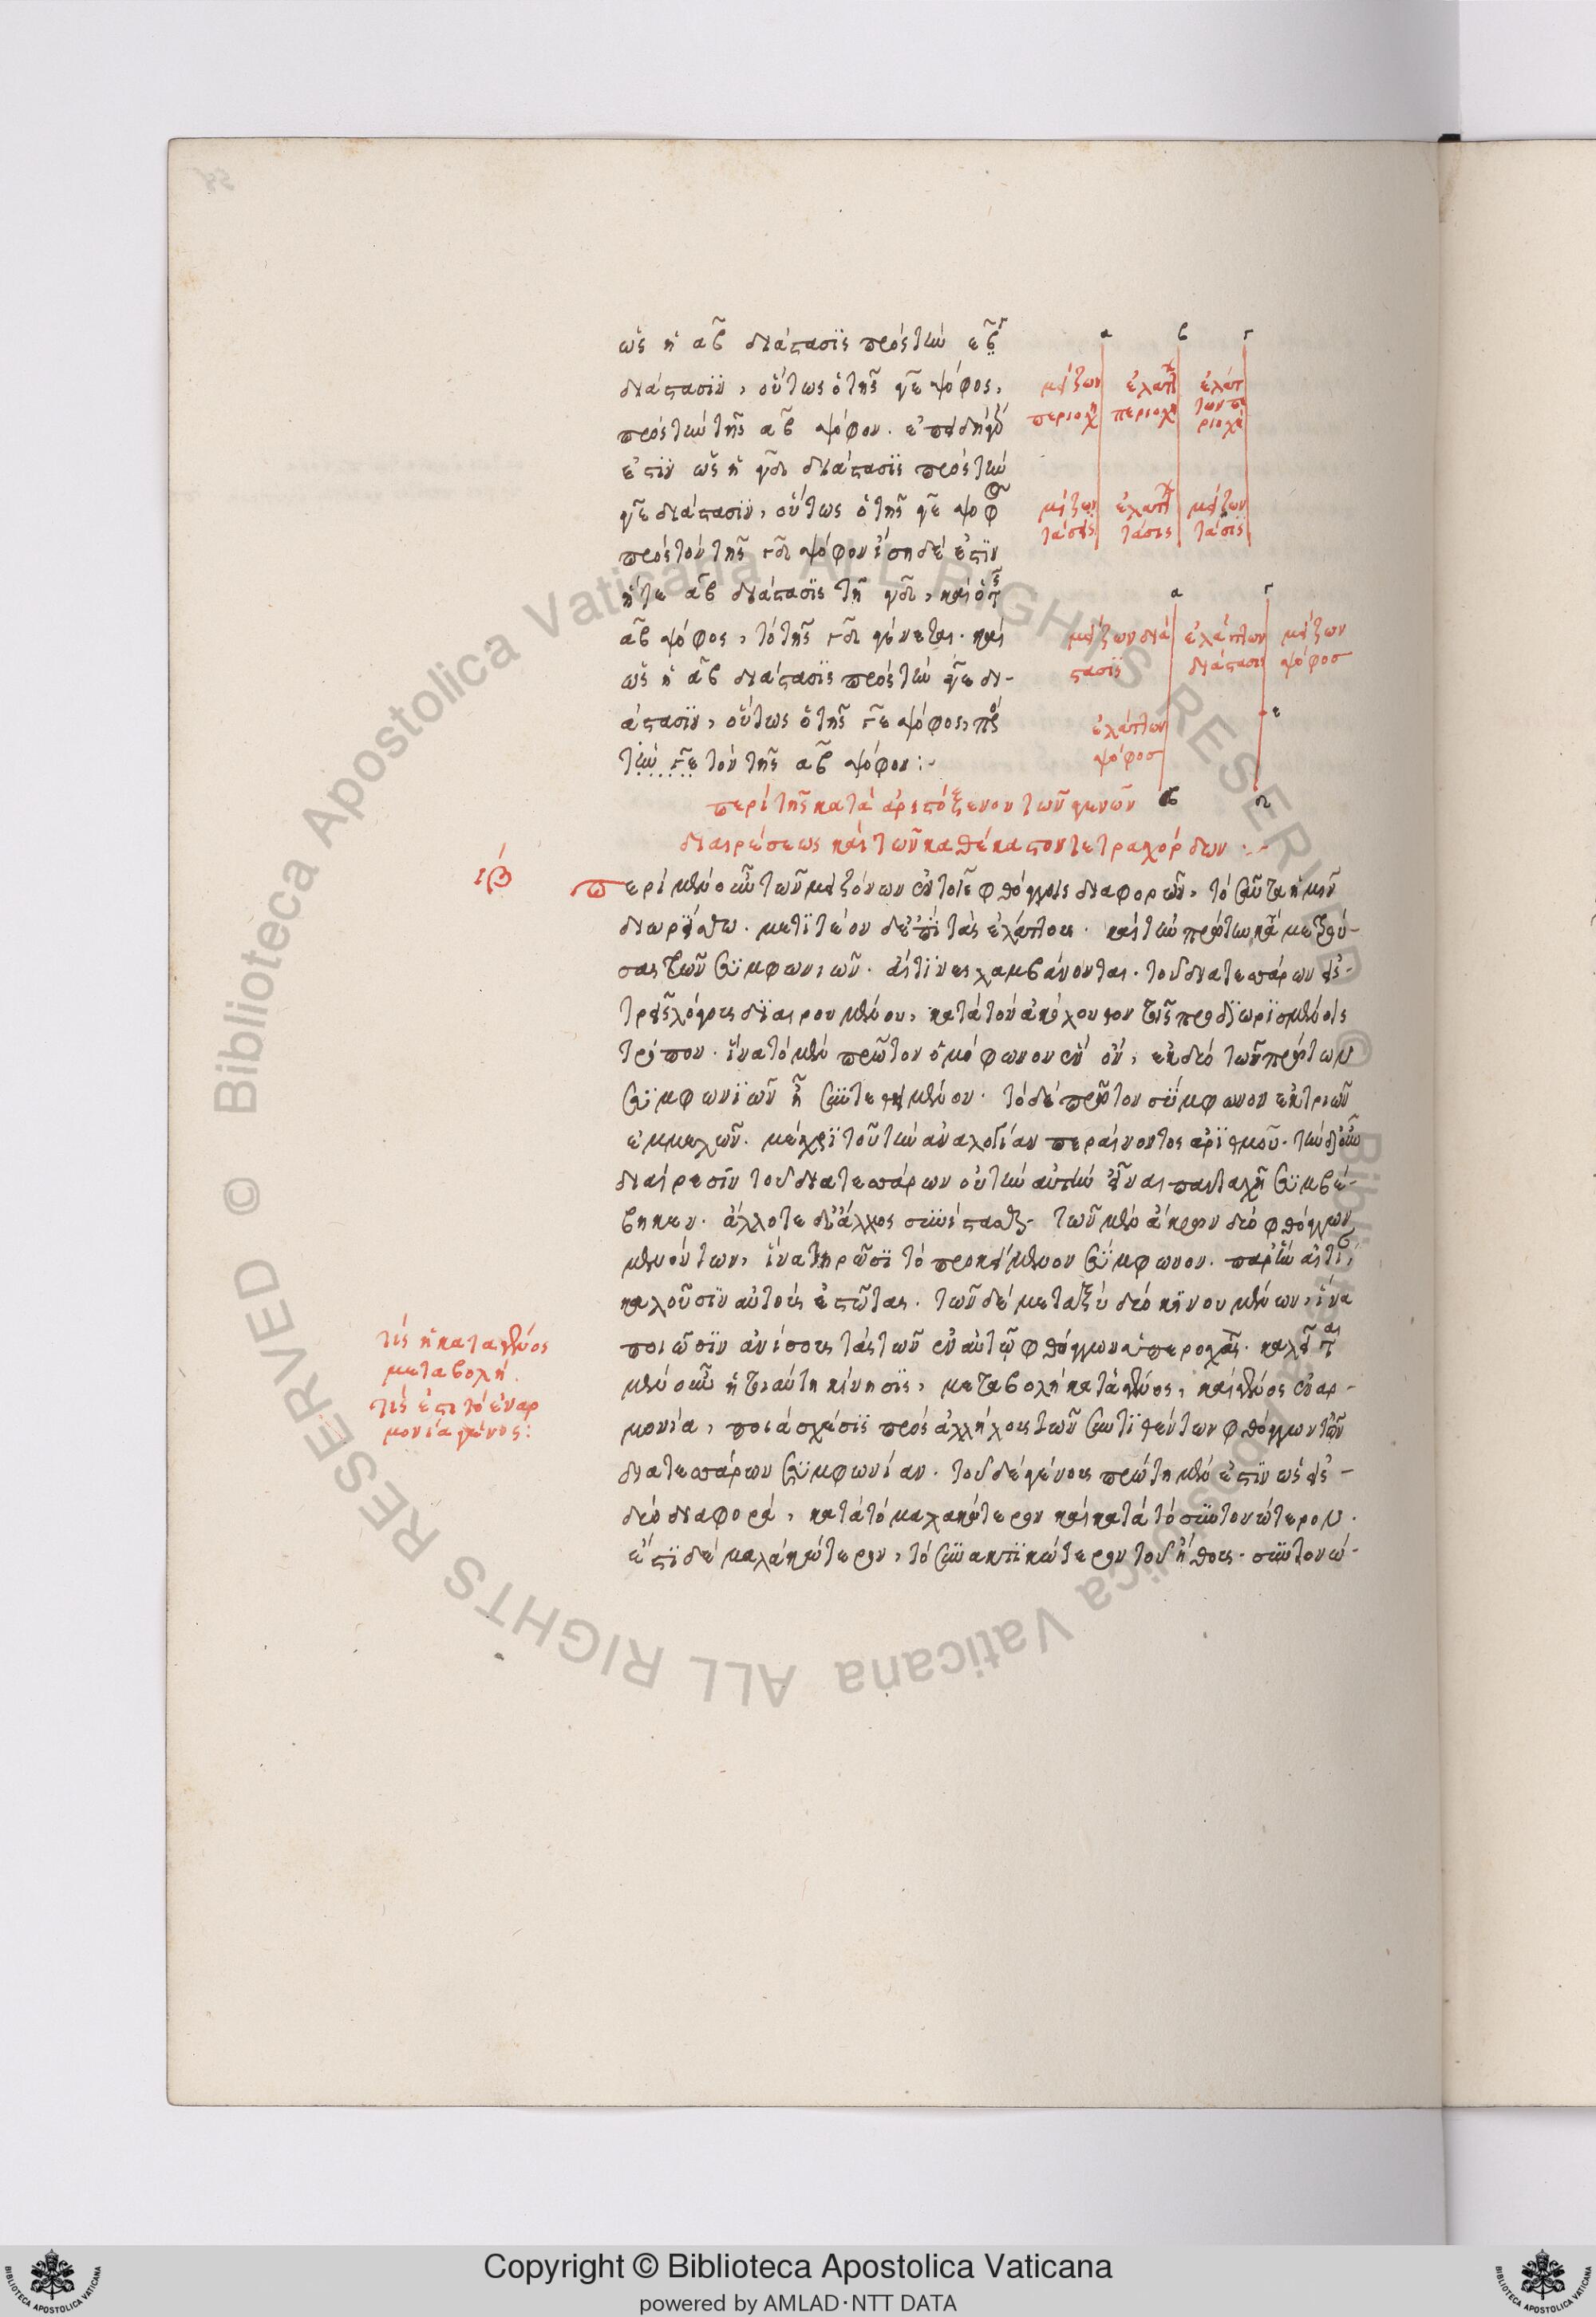 ὡς ἡ αβ διάστασις πρὸς τὴν εβ
διάστασιν, οὕτως ὁ τῆς γε ψόφος,
πρὸς τὴν τῆς αβ ψόφον. ἐπειδήπερ
ἐστιν ὡς ἡ γδ διάστασις πρὸς τὴν
γε διάστασιν, οὕτως ὁ τῆς γε ψόφος
πρὸς τὸν τῆς γδ ψόφον ἴση δέ ἐστιν
ἥτε αβ διάστασις τῇ γδ, καὶ ὁ τῆς
αβ ψόφος, τὸ τῆς γδ γίνεται. καὶ
ὡς ἡ αβ διάστασις πρὸς τὴν γε δι-
άστασιν, οὕτως ὁ τῆς γε ψόφος, πρὸς
τὴν γε τὸν τῆς αβ ψόφον :-
α β γ
μείζων περιοχή
ἐλάττων περιοχή
ἐλάττων περιοχή
μείζων τάσις
ἐλάττων τάσις
μείζων τάσις
α γ
μείζων διάστασις
ἐλάττων διάστασις
μείζων ψόφος
ε
ἐλάττων
ψόφος
β δ
περὶ τῆς κατὰ ἀριστόξενον τῶν γενῶν
διαιρέσεως καὶ τῶν καθέκαστον τετραχόρδων :-
ιβ
περὶ μὲν οὖν τῶν μειζόνων ἐν τοῖς φθόγγοις διαφορῶν, τοσαῦτα ἡμῖν
διωρίσθω. μετιτέον δὲ ἐπὶ τὰς ἐλάττους. καὶ τὴν πρώτην καταμετρού-
σας τῶν συμφωνιῶν. αἵτινες λαμβάνονται. τοῦ διατεσσάρων εἰ-
τρεῖς λόγους διαιρουμένου, κατὰ τὸν ἀκόλουθον τοῖς προδιωρισμένοις
τρόπον. ἵνα τὸ μὲν πρῶτον ὁμόφωνον ἓν ὄν, ἐκ δύο τῶν πρώτων
συμφωνιῶν ᾖ συντεθειμένον. τὸ δὲ πρῶτον σύμφωνον ἐκ τριῶν
ἐμμελῶν. μέχρι τοῦ τὴν ἀναλογίαν περαίνοντος ἀριθμοῦ. τὴν δὴ οὖν
διαίρεσιν τοῦ διατεσσάρων οὐ τὴν αὐτὴν εἶναι πανταχῇ συμβέ-
βηκεν. ἄλλοτε δ' ἄλλως συνίσταται. τῶν μὲν ἄκρων δύο φθόγγων
μενόντων, ἵνα τηρῶσι τὸ προκείμενον σύμφωνον. παρ' ἣν αἰτίαν
καλοῦσιν αὐτοὺς ἑστῶτας. τῶν δὲ μεταξὺ δύο κινουμένων, ἵνα
ποιῶσιν ἀνίσους τὰς τῶν ἐν αὐτῷ φθόγγων ὑπεροχάς. καλεῖται
μὲν οὖν ἡ τοιαύτη κίνησις, μεταβολὴ κατὰ γένος, καὶ γένος ἐν ἁρ-
μονίᾳ, ποιὰ σχέσις πρὸς ἀλλήλους τῶν συντιθέντων φθόγγων τὴν
διατεσσάρων συμφωνίαν. τοῦ δὲ γένους πρώτη μέν ἐστιν ὡς εἰ-
δύο διαφορά, κατὰ τὸ μαλακώτερον καὶ κατὰ τὸ συντονώτερον.
ἔστι δὲ μαλακώτερον, τὸ συνακτικώτερον τοῦ ἤθους. συντονώ-
τίς ἡ κατὰ γένος
μεταβολή.
τίς ἐστι τὸ ἐν ἁρ
μονίᾳ γένος :
Copyright © Biblioteca Apostolica Vaticana
powered by AMLAD·NTT DATA
© Biblioteca Apostolica Vaticana ALL RIGHTS RESERVED © Biblioteca Apostolica Vaticana ALL RIGHTS RESERVED